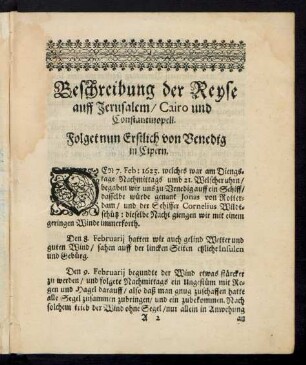 Beschreibung der Reyse
auff Jerusalem/ Cairo und
Constantinopell.
Folget nun Erstlich von Venedig
in Cipern.
DEn 7. Feb: 1623. welches war am Diengs-
tage Nachmittags umb 21. Welsche uhrn/
begaben wir uns zu Venedig auff ein Schiff/
dasselbe würde genant Jonas von Rotter-
dam/ und der Schiffer Cornelius Wildt-
schütz: dieselbe Nacht giengen wir mit einem
geringen Winde immerforth.
Den 8. Februarij hatten wir auch gelind Wetter und
guten Wind/ sahen auff der lincken Seiten etzliche Insulen
und Gebürg.
Den 9. Februarij begundte der Wind etwas stärcker
zu werden/ und folgete Nachmittags ein Ungestüm mit Re-
gen und Hagel darauff/ also daß man gnug zuschaffen hatte
alle Segel zusammen zubringen/ und ein zubekommen. Nach
solchem trieb der Wind ohne Segel/ nur allein in Anwehung
A 2 an